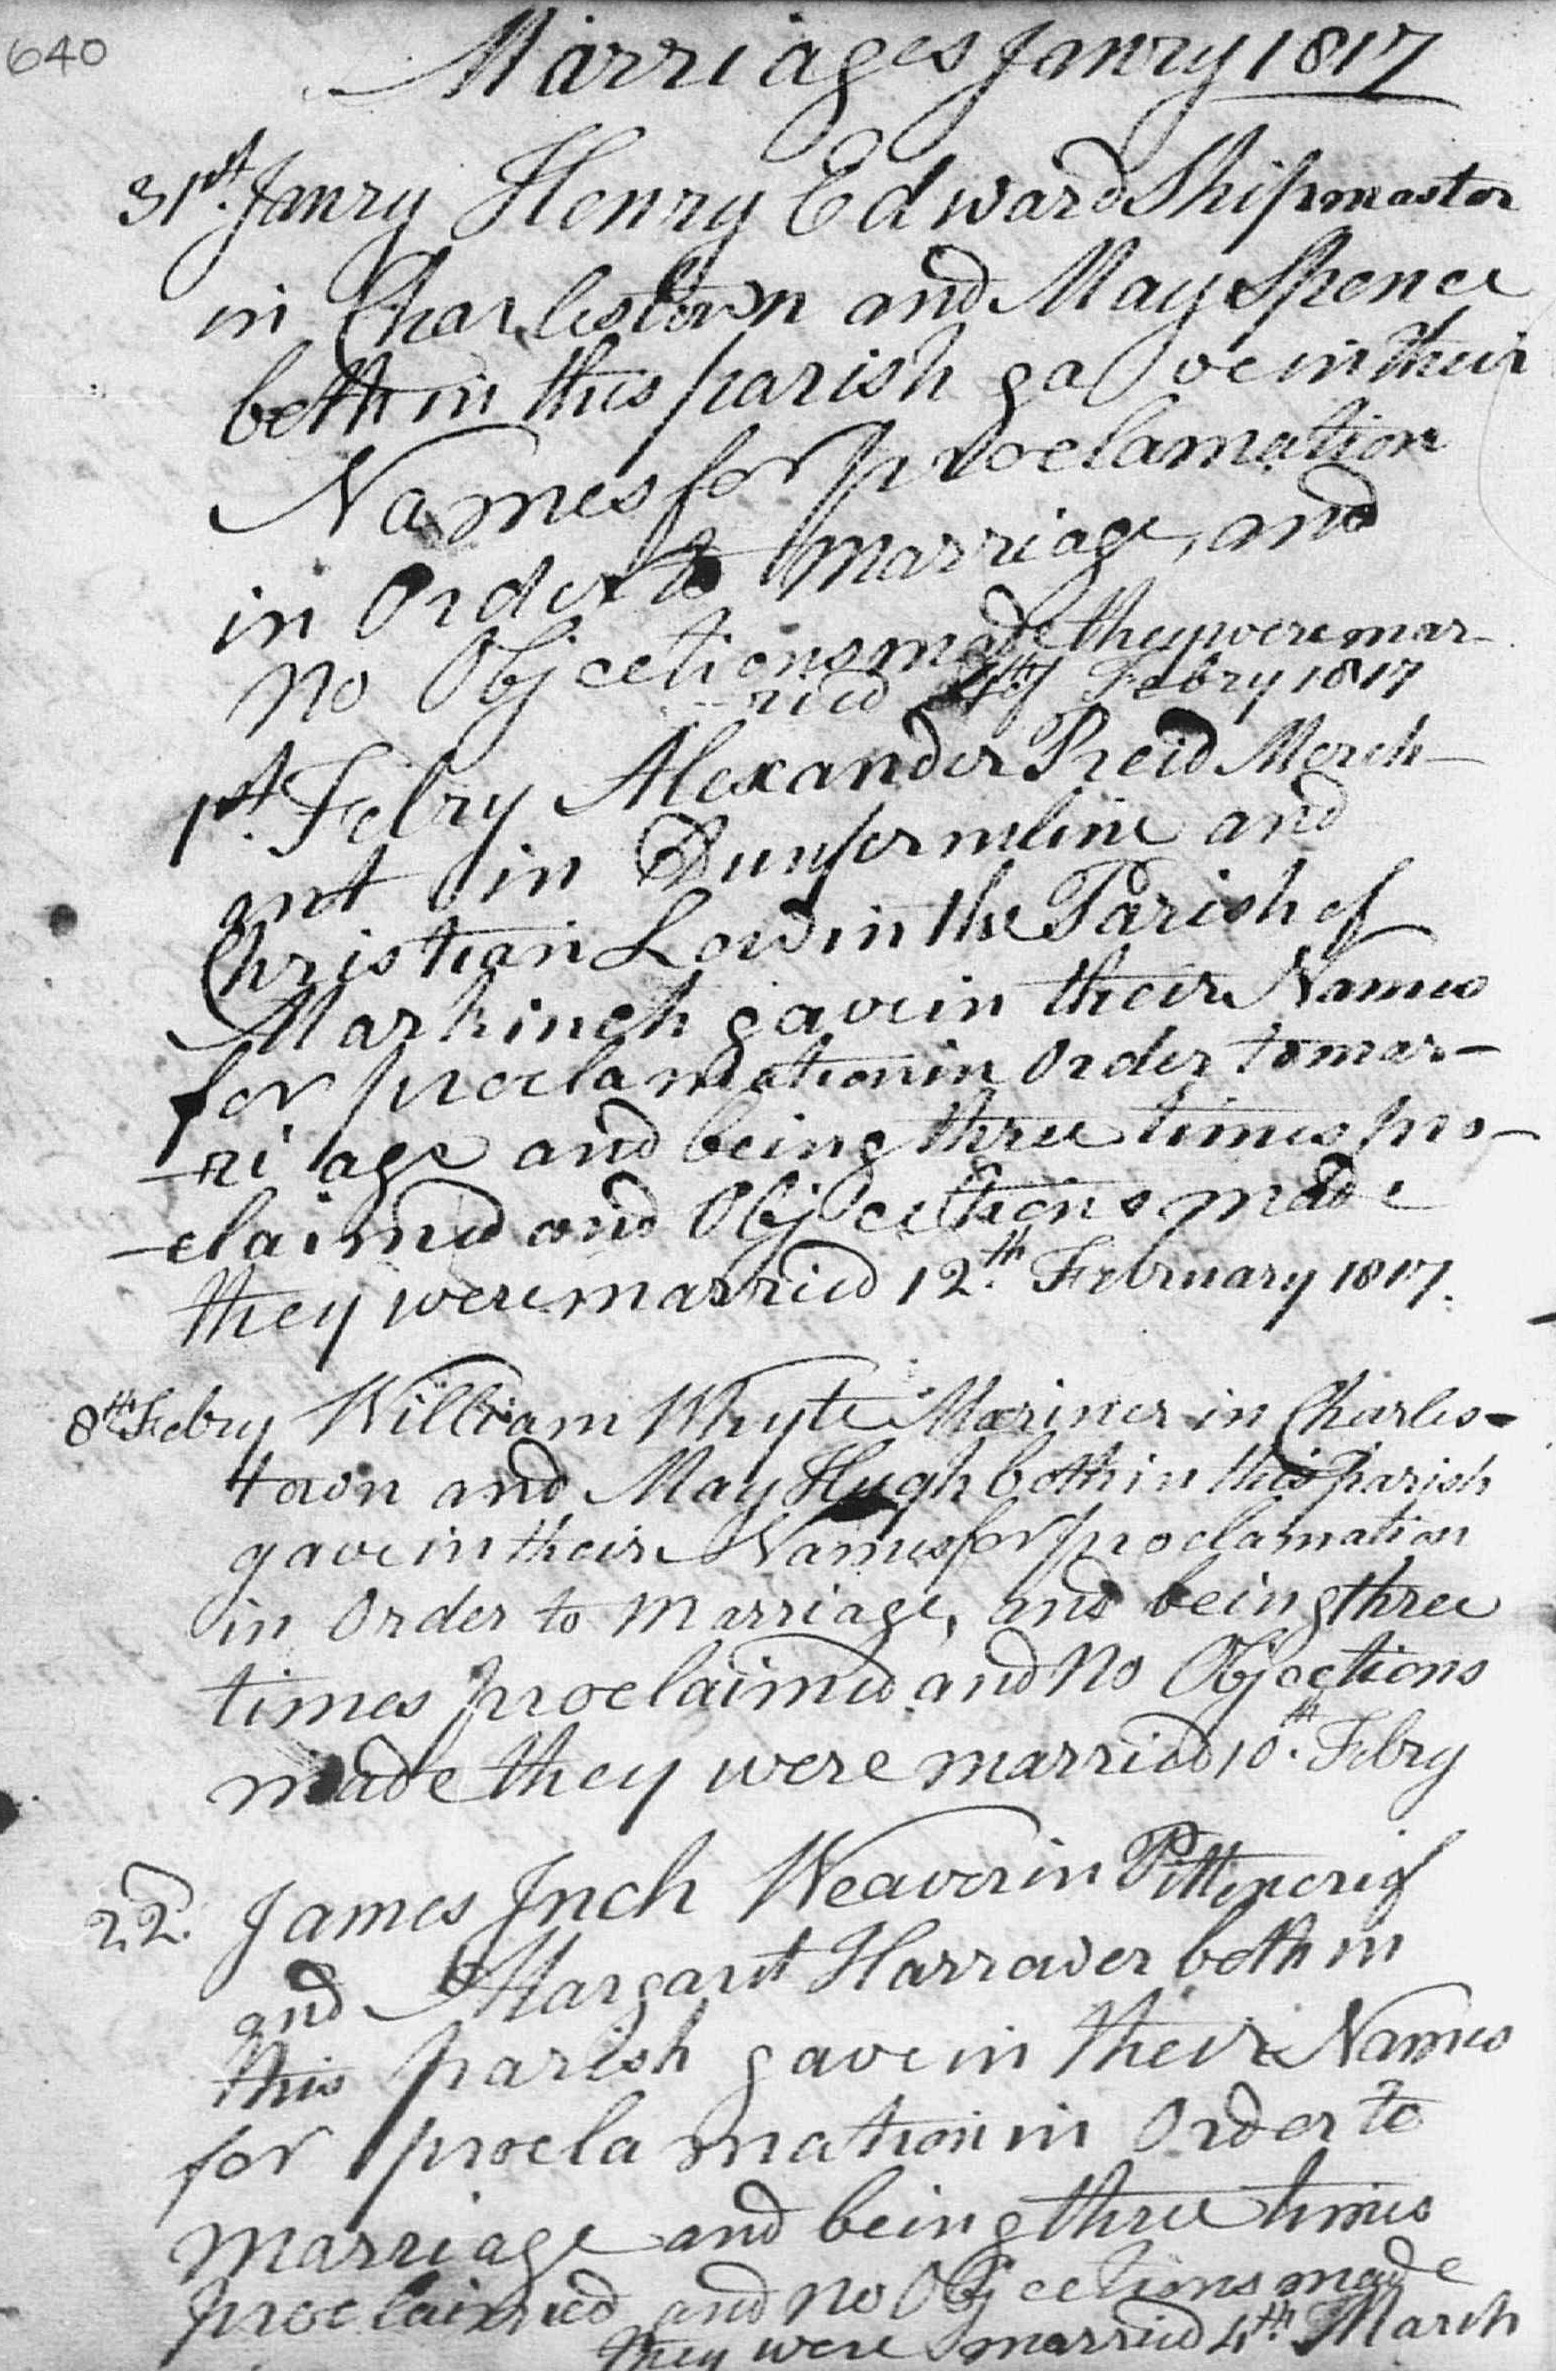 640
Marriages Janry 1817
31st. Janry Henry Edward Shipmaster
in Charlestown and May Spence
both in this parish gave in their
Names for proclamation
in Order to marriage, and
no Objections made they were mar-
-ried Febry 1817
1st. Febry Alexander Reid Merch-
ant in Dunfermline and
Christian Low in the Parish of
Markinch gave in their Names
for proclamation in Order to mar-
-riage and being three times pro-
-claimed and Objections made
they were married 12th. February 1817.
8th. Febry William Whyte Mariner in Charles-
town and May Hugh both in this parish
gave in their Names for proclamation
in Order to Marriage, and being three
times proclaimed and no Objections
made they were married 10th. Febry
22d. James Inch Weaver in Pittencrief
and Margaret Harrower both in
this parish gave in their Names
for proclamation in Order to
marriage and being three times
proclaimed and no Objections made
they were married 4th. March